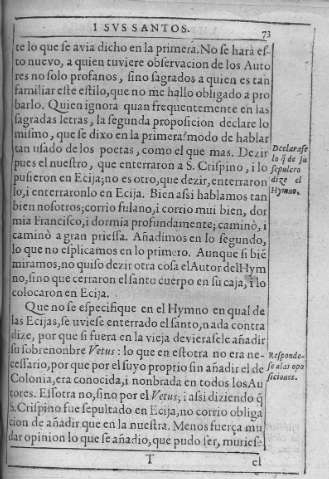 I SVS SANTOS.
73
te lo que se avia dicho en la primera. No se harà es-
to nuevo, a quien tuviere observacion de los Auto
res no solo profanos, sino sagrados a quien es tan
familiar este estilo, que no me hallo obligado a pro
barlo. Quien ignora quan frequentemente en las
sagradas letras, la segunda proposicion declare lo
mismo, que se dixo en la primera? modo de hablar
tan usado de los poetas, como el que mas. Dezir
pues el nuestro, que enterraron a S. Crispino, i lo
pusieron en Ecija; no es otro, que dezir, enterraron
lo, i enterraronlo en Ecija. Bien assi hablamos tan
bien nosotros; corrio fulano, i corrio mui bien, dor
mia Francisco, i dormia profundamente; caminò, i
caminò a gran priessa. Añadimos en lo segundo,
lo que no esplicamos en lo primero. Aunque si bie
miramos, no quiso dezir otra cosa el Autor del Hym
no, sino que cerraron el santo cuerpo en su caja, i lo
colocaron en Ecija.
Declarase
lo q̃ de su
sepulcro
dize el
Hymno.
Que no se especifique en el Hymno en qual de
las Ecijas, se uviese enterrado el santo, nada contra
dize, por que si fuera en la vieja devierasele añadir
su sobrenonbre Vetus: lo que en estotra no era ne-
cessario, por que por el suyo proprio sin añadir el de
Colonia, era conocida, i nonbrada en todos los Au
tores. Essotra no, sino por el Vetus; i assi diziendo q̃
S. Crispino fue sepultado en Ecija, no corrio obliga
cion de añadir que en la nuestra. Menos fuerça mu
dar opinion lo que se añadio, que pudo ser, muriese-
Responde-
se a las opo
siciones.
T
el